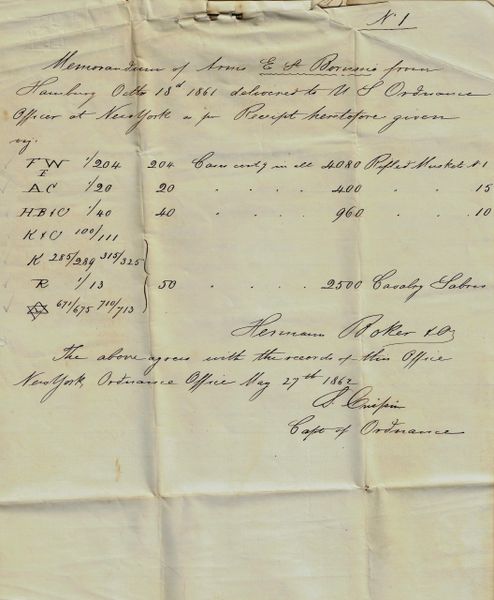 N 1
Memorandum of Arms E St Borussia from
Hamburg Octbr 18d 1861 delivered to U S Ordnance
Officer at New York as pr Receipt heretofore given
viz.
FW 1/204 204 Cases contg in all 4080 Rifled Muskets N 1
F
AC 1/20 20 " " " 400 " " 15
HB&C 1/40 40 " " " 960 " " 10
K&C 100/111
K 285/289 315/325
R 1/13 50 " " " 2500 Cavalry Sabres
671/675 710/713
Hermann Boker & Co
The above agrees with the records of this Office
New York, Ordnance Office May 27th 1862
S. Crispin
Capt of Ordnance